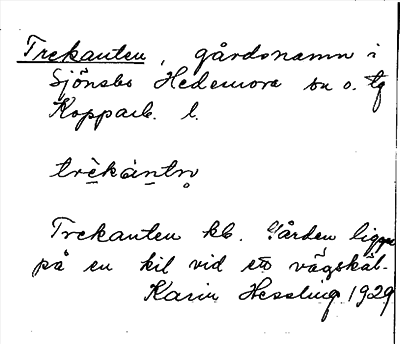 Trekanten, gårdsnamn i
Sjönsbo Hedemora sn o. tg
Kopparb. l.
trèkántn̥
Trekanten kb. Gården ligger
på en kil vid ett vägskäl.
Karin Hessling. 1929